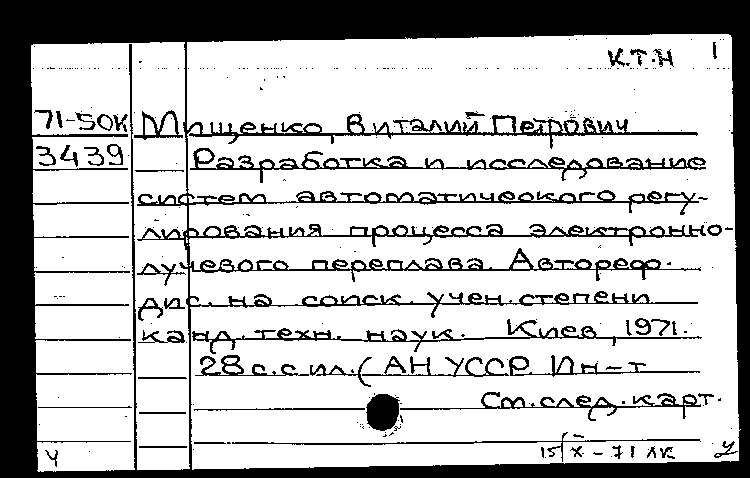 К.Т.Н 1
71-50К Мищенко, Виталий Петрович
3439 Разработка и исследование
систем автоматического регу-
лирования процесса электронно-
лучевого переплава. Автореф.
дис. на соиск. учен. степени
канд. техн. наук. Киев, 1971.
28 с. с ил. (АН УССР. Ин-т
См. след. карт.
Ч 15/X-71 ЛК